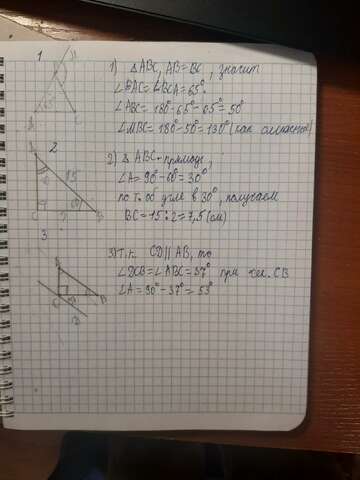 1
1) △ABC, AB=BC, значит
∠BAC=∠BCA=65°
∠ABC=180°-65°-65°=50°
∠MBC=180°-50°=130° (как смежной)
2
2) △ABC-прямоуг,
∠A=90°-60°=30°
по т. об угле в 30°, получаем
BC=15:2=7,5(см)
3
3) т.к. CD||AB, то
∠DCB=∠ABC=37° при сек. CB
∠A=90°-37°=53°